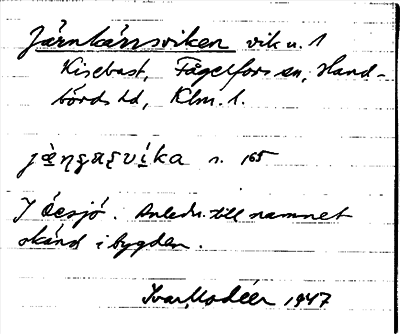 Järnkärrsviken vik u. 1
Kisebast, Fågelfors sn, Hand-
börds hd, Klm. l.
s. 165
I Åcsjö. Anledn. till namnet
okänd i bygden.
Ivar Modéer 1947